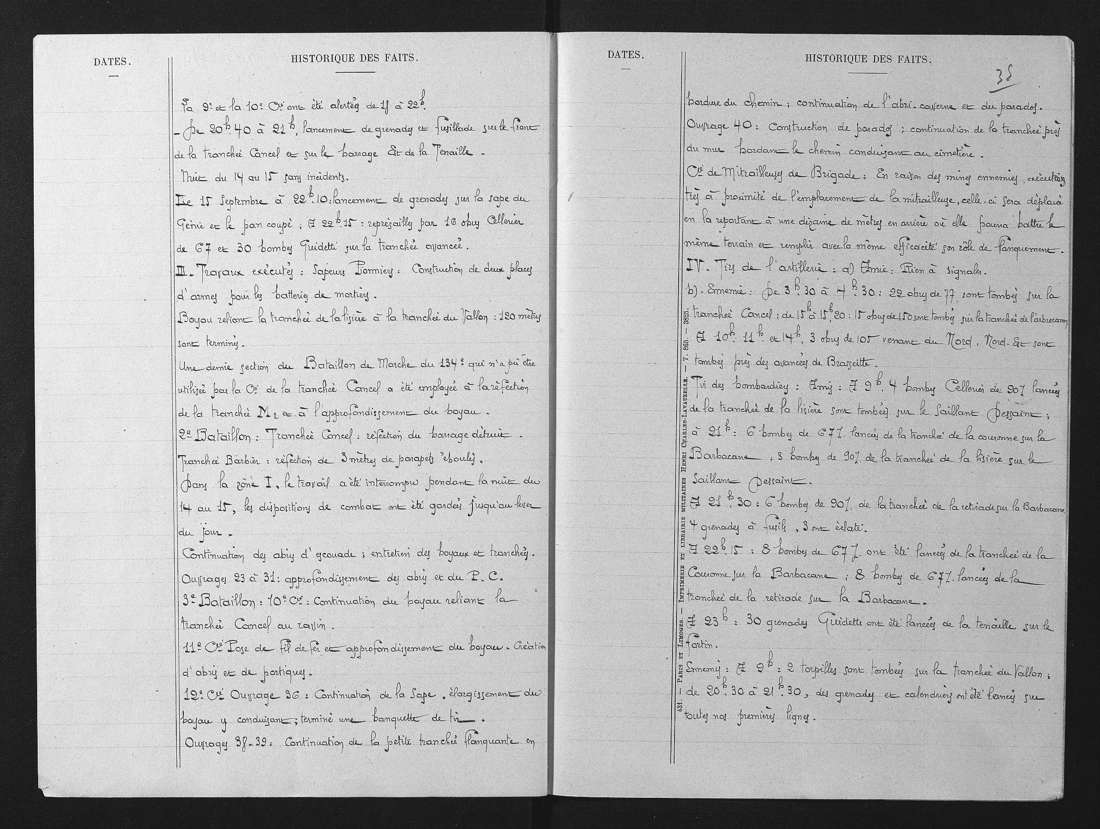 DATES.
HISTORIQUE DES FAITS.
La 9e et la 10e Cie ont été alertées de 18 à 22h.
- De 20h40 à 21h, lancement de grenades et fusillade sur le front
de la tranchée Cancel et sur le barrage Est de la Tenaille.
Nuit du 14 au 15 sans incidents.
Le 15 Septembre à 22h10: lancement de grenades sur la sape du
Génie et le pan coupé, à 22h15: représailles par 16 obus Cellerier
de 67 et 30 bombes Guidetti sur la tranchée avancée.
III. Travaux exécutés: Sapeurs Pionniers: Construction de deux places
d'armes pour les batteries de mortiers.
Boyau reliant la tranchée de la lisière à la tranchée du Vallon: 120 mètres
sont terminés.
Une demie section du Bataillon de Marche du 134e qui n'a pû être
utilisée par la Cie de la tranchée Cancel a été employée à la réfection
de la tranchée M2 et à l'approfondissement du boyau.
2e Bataillon: Tranchée Cancel: réfection du barrage détruit.
Tranchée Barbier: réfection de 3 mètres de parapets éboulés.
Dans la zône I, le travail a été interrompu pendant la nuit du
14 au 15, les dispositions de combat ont été gardées jusqu'au lever
du jour.
Continuation des abris d'escouade; entretien des boyaux et tranchées.
Ouvrages 23 à 31: approfondissement des abris et du P.C.
3e Bataillon: 10e Cie: Continuation du boyau reliant la
tranchée Cancel au ravin.
11e Cie Pose de fil de fer et approfondissement du boyau. Création
d'abris et de portiques.
12e Cie Ouvrage 36: Continuation de la Sape, élargissement du
boyau y conduisant; terminé une banquette de tir.
Ouvrages 38-39: Continuation de la petite tranchée flanquante en
DATES.
HISTORIQUE DES FAITS.
38
bordure du chemin; continuation de l'abri-caverne et du parados.
Ouvrage 40: Construction de parados; continuation de la tranchée près
du mur bordant le chemin conduisant au cimetière.
Cie de Mitrailleuses de Brigade: En raison des mines ennemies, exécutées
très à proximité de l'emplacement de la mitrailleuse, celle-ci sera déplacée
en la reportant à une dizaine de mètres en arrière où elle pourra battre le
même terrain et remplir avec la même efficacité son rôle de flanquement.
IV. Tirs de l'artillerie: a) Amie: Rien à signaler.
b). Ennemie: De 3h30 à 4h30: 22 obus de 77 sont tombés sur la
tranchée Cancel; de 15h à 15h20: 15 obus de 150 sont tombés sur la tranchée de l'arbre canon
- A 10h, 11h et 14h, 3 obus de 105 venant du Nord, Nord-Est sont
tombés près des avancées de Brasseitte.
Tir des bombardiers: Amis: A 9h, 4 bombes Cellerier de 90% lancées
de la tranchée de la lisière sont tombées sur le Saillant Dessaint;
à 21h: 6 bombes de 67% lancées de la tranchée de la couronne sur la
Barbacane; 3 bombes de 90% de la tranchée de la lisière sur le
Saillant Dessaint.
A 21h,30: 6 bombes de 90% de la tranchée de la retirade sur la Barbacane,
4 grenades à fusils, 3 ont éclaté.
A 22h,15: 8 bombes de 67% ont été lancées de la tranchée de la
Couronne sur la Barbacane; 8 bombes de 67% lancées de la
tranchée de la retirade sur la Barbacane.
A 23h: 30 grenades Guidetti ont été lancées de la tenaille sur le
fortin.
Ennemis: A 9h: 2 torpilles sont tombées sur la tranchée du Vallon;
de 20h30 à 21h30, des grenades et calendriers ont été lancés sur
toutes nos premières lignes.
431. — PARIS ET LIMOGES. — IMPRIMERIE ET LIBRAIRIE MILITAIRES HENRI CHARLES-LAVAUZELLE.